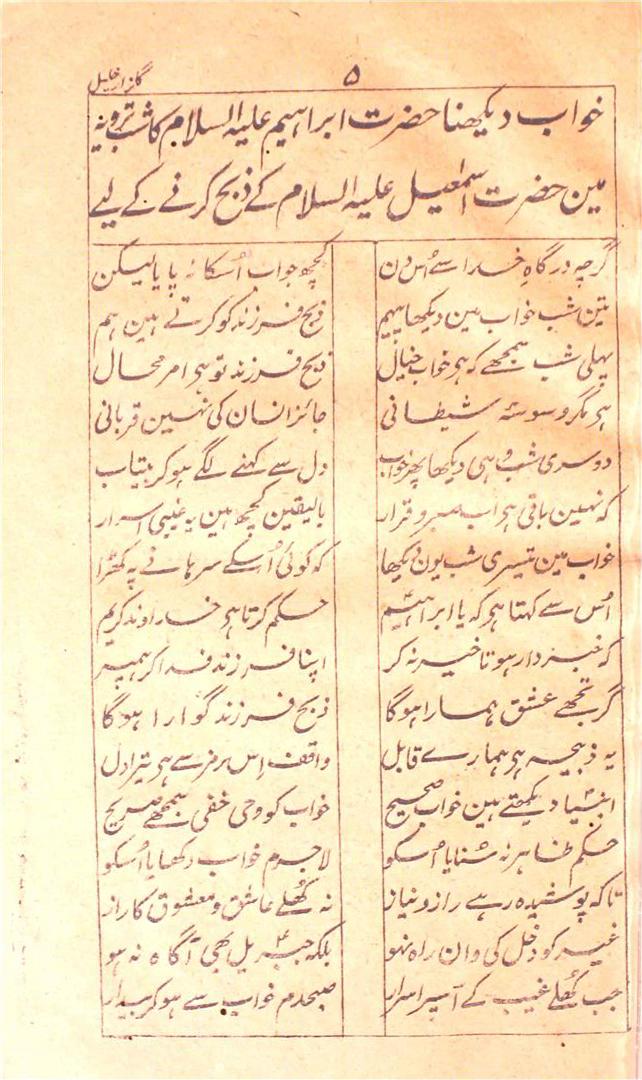 گلزار خلیل
۵
خواب دیکھنا حضرت ابراہیم علیہ السلام کا شب ترویہ
مین حضرت اسمعیل علیہ السلام کے ذبح کرنے کے لیے
گرچہ درگاہِ خدا سے اُس دن
کچھ جواب اُسکا نہ پایا لیکن
تین شب خواب مین دیکھا پیہم
ذبح فرزند کو کرتے ہین ہم
پہلی شب سمجھے کہ ہی خواب خیال
ذبح فرزند تو ہی امر محال
ہی مگر وسوسئہ شیطانی
جائز انسان کی نہین قربانی
دوسری شب وہی دیکھا پھر خواب
دل سے کہنے لگے ہو کر بیتاب
کہ نہین باقی ہی اب صبر و قرار
بالیقین کچھ ہین یہ غیبی اسرار
خواب مین تیسری شب یون دیکھا
کہ کوئی اُسکے سرہانے پہ کھڑا
اُس سے کہتا ہی کہ یا ابراہیمؑ
حکم کرتا ہی خداوند کریم
کہ خبردار ہو تاخیر نہ کر
اپنا فرزند فدا کر ہمپر
گر تجھے عشق ہمارا ہوگا
ذبح فرزند گوارا ہوگا
یہ ذبیحہ ہی ہمارے قابل
واقف اِس رمز سے ہی تیرا دل
انبیاؑ دیکھتے ہین خواب صحیح
خواب کو وحی خفی سمجھے صریح
حکم ظاہر نہ سُنایا اُسکو
لاجرم خواب دکھایا اُسکو
تاکہ پوشیدہ رہے راز و نیاز
نہ کُھلے عاشق و معشوق کا راز
غیر کو دخل کی وان راہ نہو
بلکہ جبریلؑ بھی آگاہ نہ ہو
جب کُھلے غیب کے اسپر اسرار
صبحدم خواب سے ہو کر بیدار